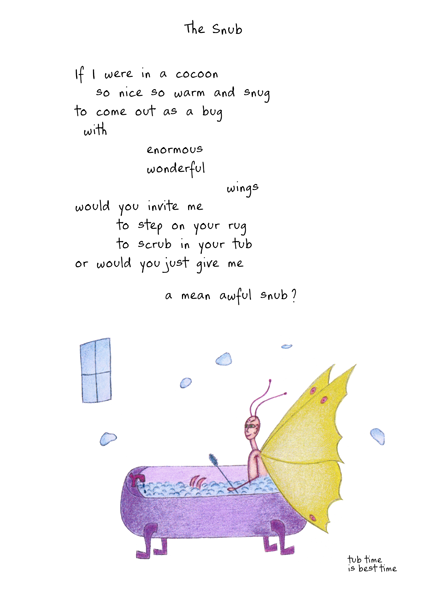 The Snub
If I were in a cocoon
so nice so warm and snug
to come out as a bug
with
enormous
wonderful
wings
would you invite me
to step on your rug
to scrub in your tub
or would you just give me
a mean awful snub?
tub time
is best time